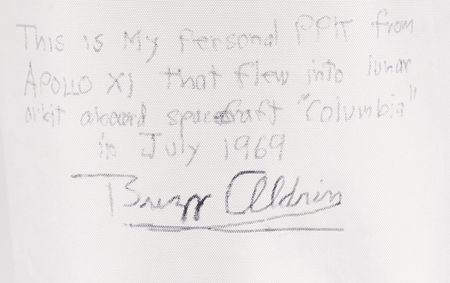 This is My Personal PPK from
APOLLO XI that flew into lunar
orbit aboard spacecraft "Columbia"
in July 1969
Buzz Aldrin